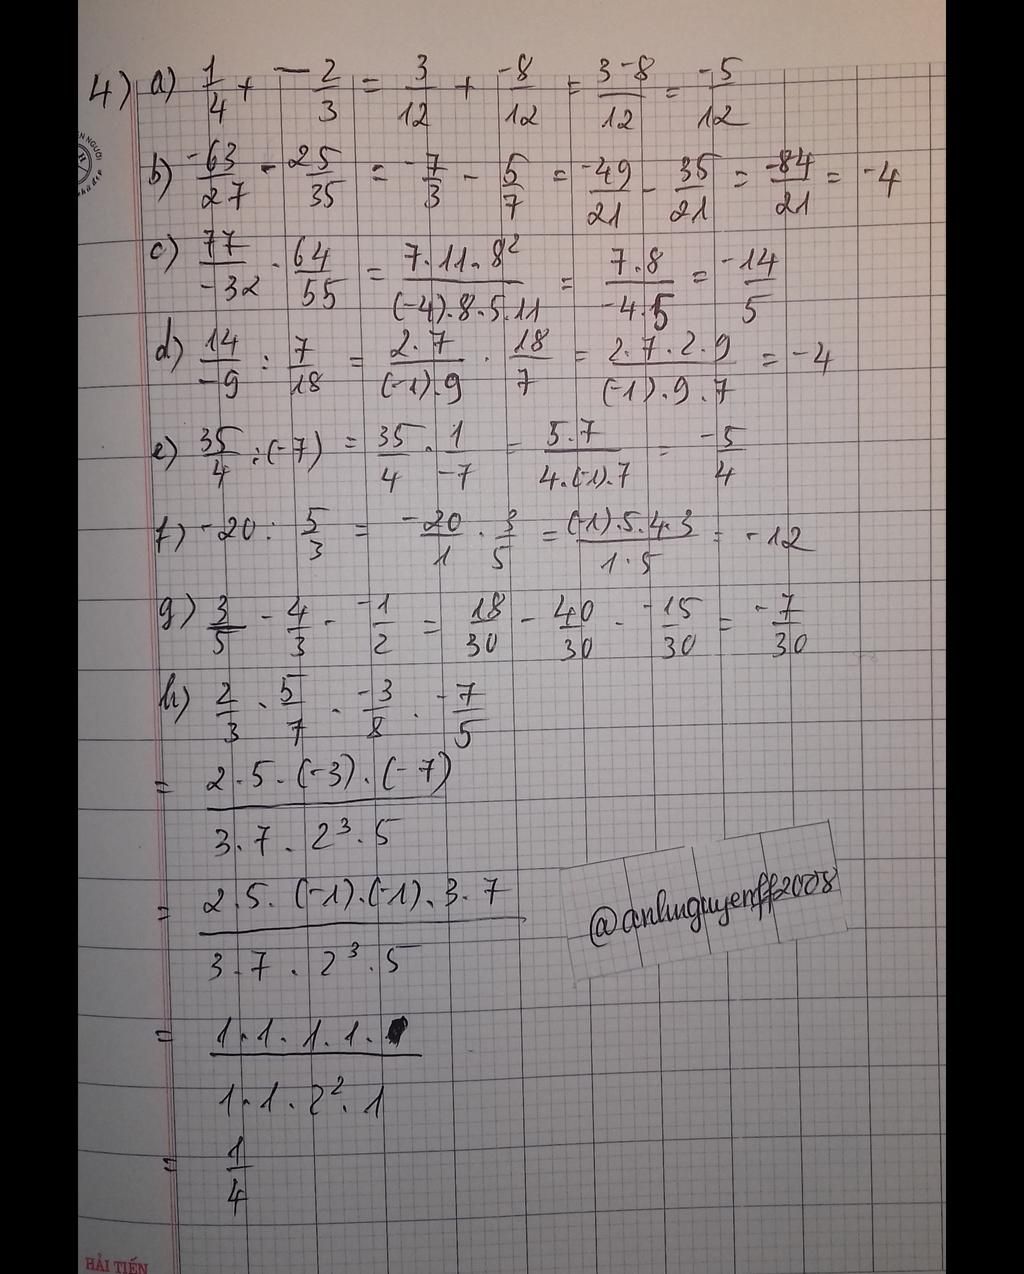 4) a) 1/4 + -2/3 = 3/12 + -8/12 = 3-8/12 = -5/12
b) -63/27 - 25/35 = -7/3 - 5/7 = -49/21 - 35/21 = -84/21 = -4
c) 77/-32 . 64/55 = 7.11.8²/(-4).8.5.11 = 7.8/-4.5 = -14/5
d) 14/-9 : 7/18 = 2.7/(-1).9 . 18/7 = 2.7.2.9/(-1).9.7 = -4
e) 35/4 : (-7) = 35/4 . 1/-7 = 5.7/4.(-1).7 = -5/4
f) -20 : 5/3 = -20/1 . 3/5 = (-1).5.4.3/1.5 = -12
g) 3/5 - 4/3 - -1/2 = 18/30 - 40/30 - -15/30 = -7/30
h) 2/3 . 5/7 . -3/8 . -7/5
= 2.5.(-3).(-7)/3.7.2³.5
= 2.5.(-1).(-1).3.7/3.7.2³.5
= 1.1.1.1./1.1.2².1
= 1/4
@anhnguyenff2008
HẢI TIẾN